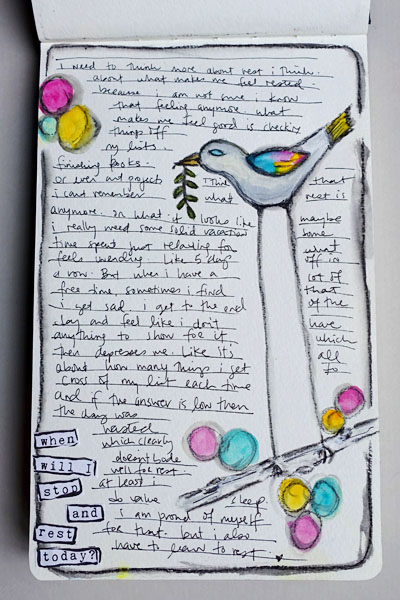 i need to think more about rest i think.
about what makes me feel rested.
because i am not sure i know
that feeling anymore. what
makes me feel good is checking
things off
my lists.
finishing books.
or even art projects
i cant remember
anymore. or what it looks like
i really need some solid vacation
time spent just relaxing for
feels inwardly. Like 5 days
a row. But when i have a
free time, sometimes i find
i get sad. i get to the end
day and feel like i don't
anything to show for it
then depresses me. Like it's
about how many things i get
cross of my list each time
and if the answer is low then
the day was
wasted
which clearly
doesn't bode
well for rest.
at least i
do value sleep
i am proud of myself
for that. but i also
have to learn to rest.
i think
what
that
rest is
maybe
some
what
off in
lot of
that
of the
have
which
all
to
when
will I
stop
and
rest
today?